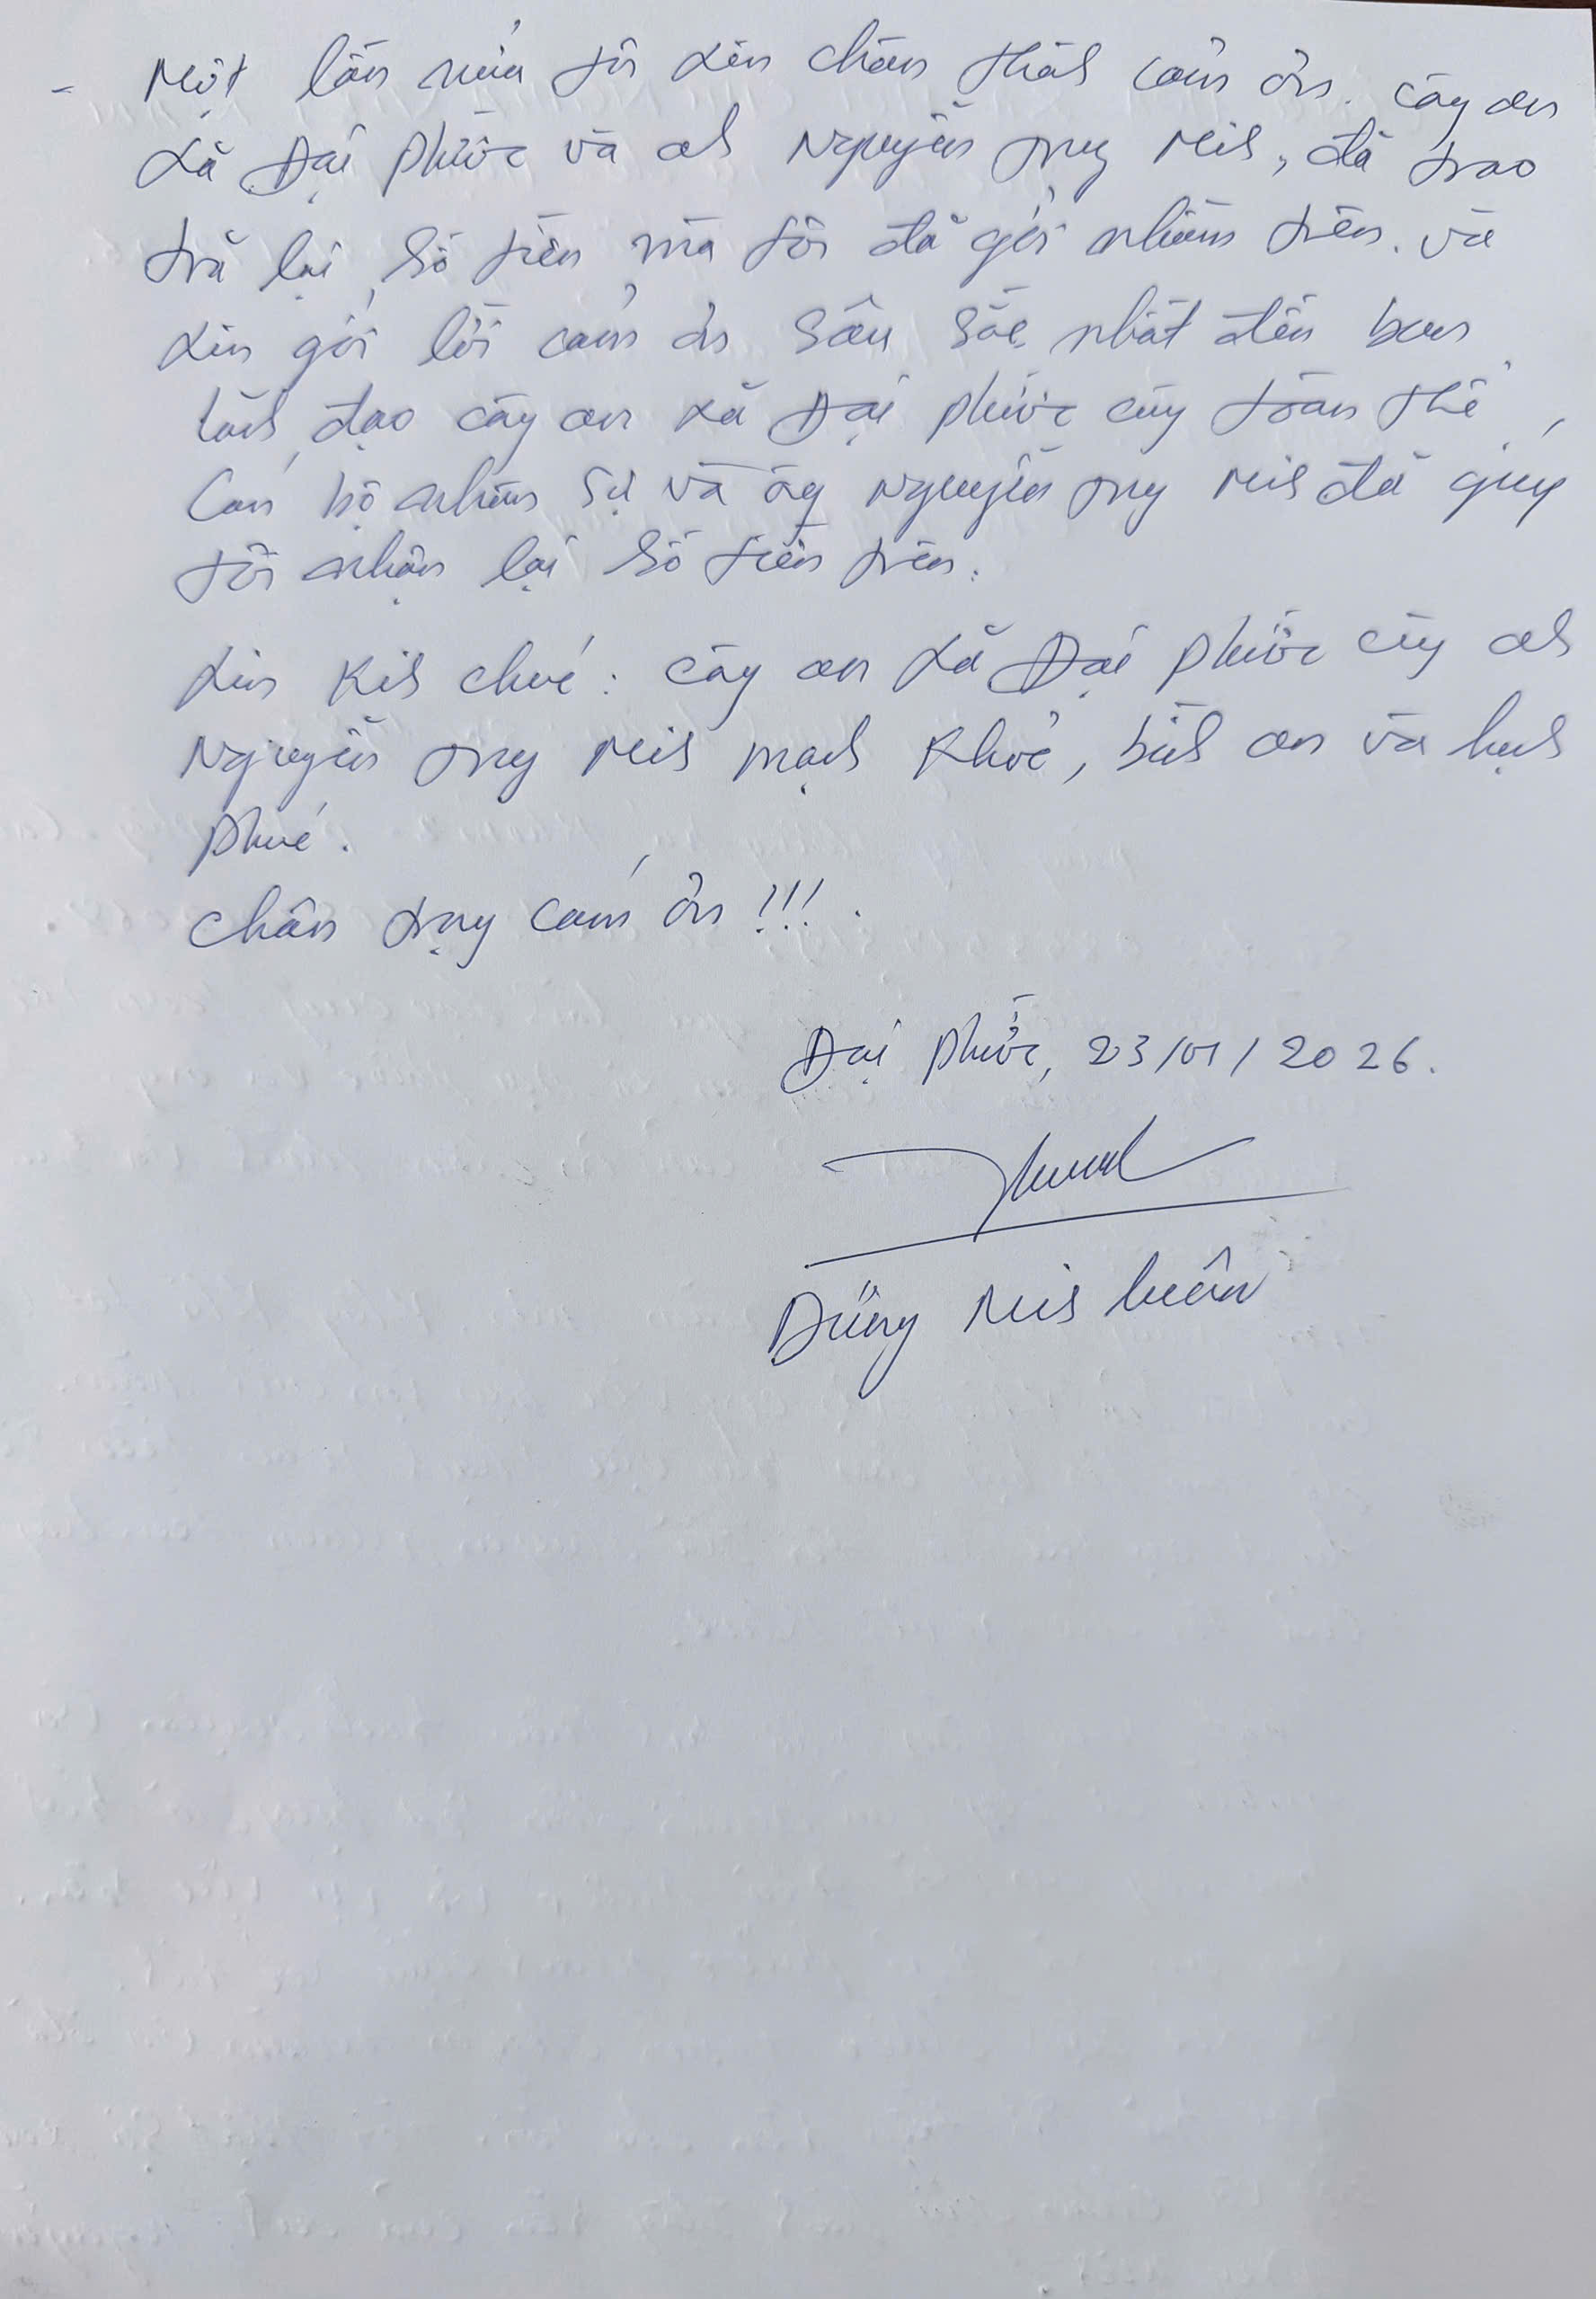 - Một lần nữa tôi xin chân thành cảm ơn. công an
xã Đại Phước và anh Nguyễn Trung Minh, đã trao
trả lại số tiền mà tôi đã gởi nhầm trên. và
xin gởi lời cảm ơn sâu sắc nhất đến ban
lãnh đạo công an xã Đại Phước cùng toàn thể
Cán bộ nhân sự và ông Nguyễn Trung Minh đã giúp
tôi nhận lại số tiền trên.
Xin Kính chúc: công an xã Đại Phước cùng anh
Nguyễn Trung Minh mạnh khoẻ, bình an và hạnh
phúc.
Chân trọng cảm ơn !!!.
Đại Phước, 23/01/2026.
Dương Minh Luân